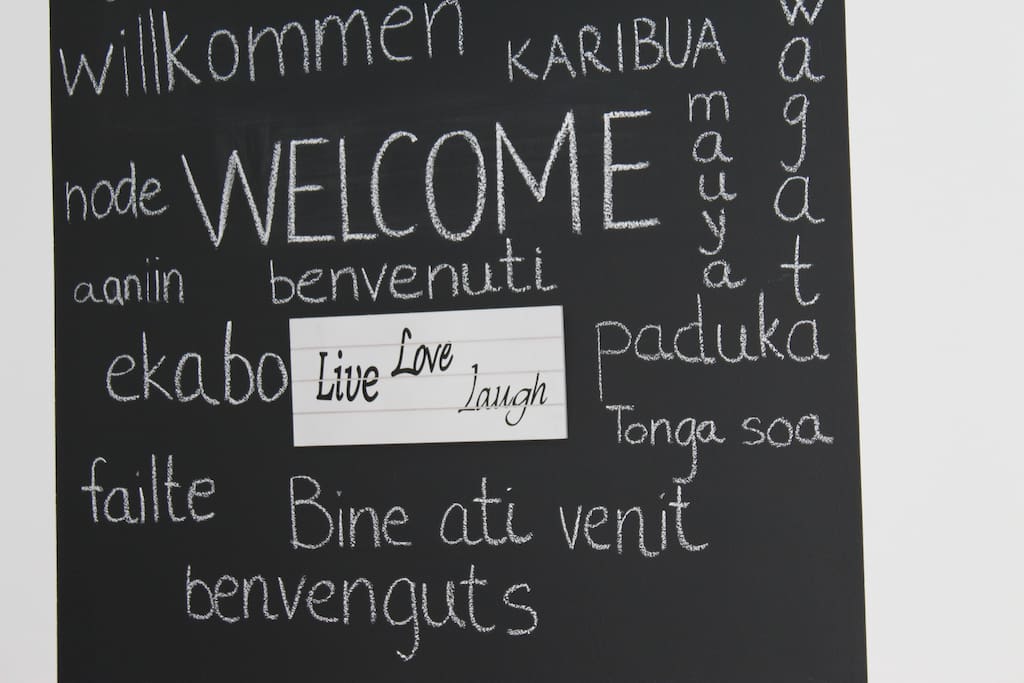 willkommen
KARIBUA
wagat
mauya
WELCOME
node
aaniin
benvenuti
ekabo
Live Love Laugh
paduka
Tonga soa
failte
Bine ati venit
benvenguts